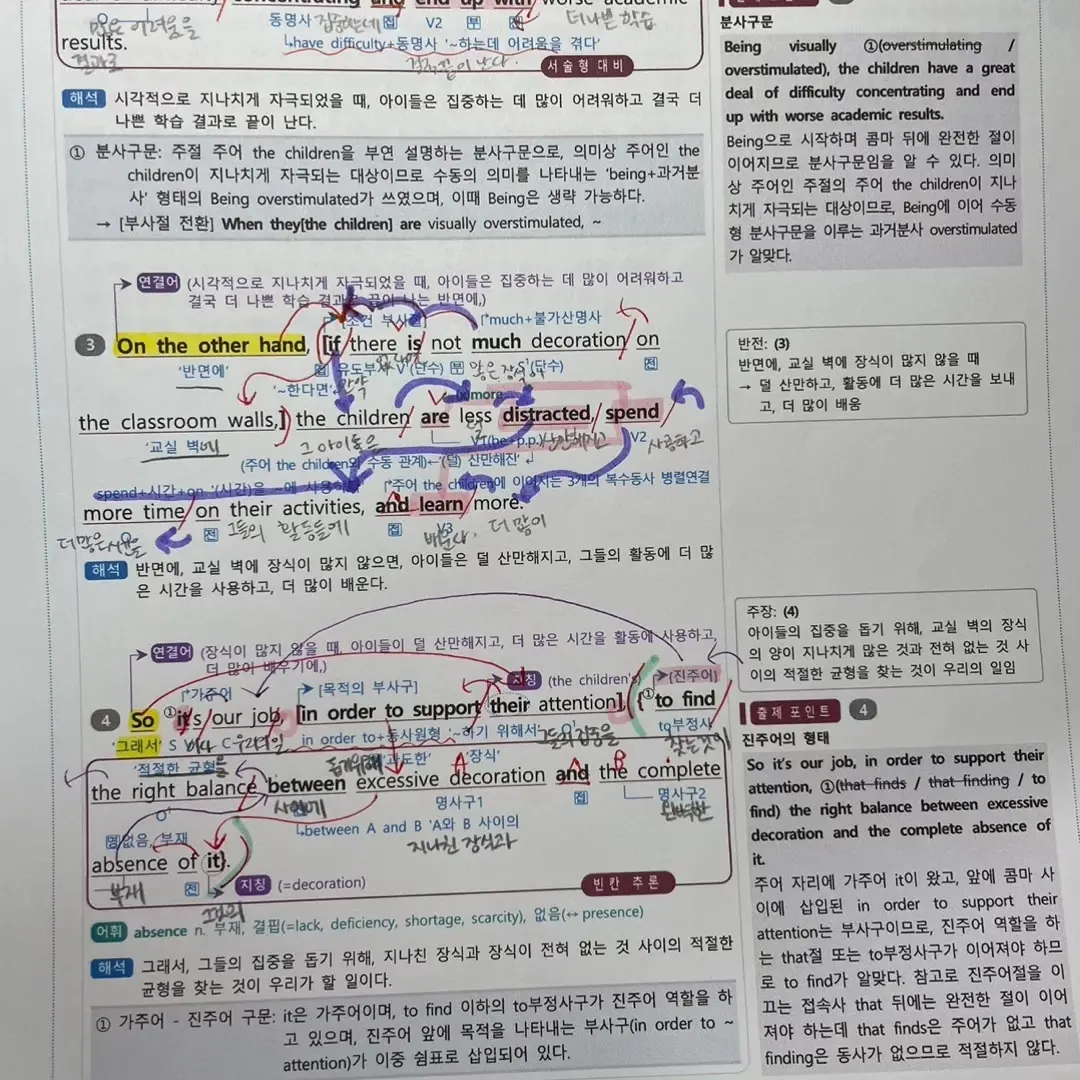 concentrating and end up with worse academic
results.
동명사 집중하는데 접 V2 부
더 나쁜 학습
많은 어려움을
결과로
↳have difficulty+동명사 '~하는데 어려움을 겪다'
결국 끝이 난다.
서술형 대비
해석 시각적으로 지나치게 자극되었을 때, 아이들은 집중하는 데 많이 어려워하고 결국 더
나쁜 학습 결과로 끝이 난다.
① 분사구문: 주절 주어 the children을 부연 설명하는 분사구문으로, 의미상 주어인 the
children이 지나치게 자극되는 대상이므로 수동의 의미를 나타내는 'being+과거분
사' 형태의 Being overstimulated가 쓰였으며, 이때 Being은 생략 가능하다.
→ [부사절 전환] When they[the children] are visually overstimulated, ~
연결어 (시각적으로 지나치게 자극되었을 때, 아이들은 집중하는 데 많이 어려워하고
결국 더 나쁜 학습 결과로 끝이 나는 반면에,)
[조건 부사절] much+불가산명사
3 On the other hand, [if there is not much decoration on
'반면에' 접 유도부사 V'(단수) 부 많은 장식이 S'(단수) 전
'~한다면' 만약
more
the classroom walls,] the children are less distracted, spend
'교실 벽에' 그 아이들은 덜 V1(be+p.p.) 산만해지고 V2 사용하고
(주어 the children와 수동 관계)←'(덜) 산만해진'
spend+시간+on '(시간)을 ~에 사용하다' 주어 the children에 이어지는 3개의 복수동사 병렬연결
more time on their activities, and learn more.
더 많은 시간을 전 그들의 활동들에게 접 V3 배운다. 더 많이
해석 반면에, 교실 벽에 장식이 많지 않으면, 아이들은 덜 산만해지고, 그들의 활동에 더 많
은 시간을 사용하고, 더 많이 배운다.
연결어 (장식이 많지 않을 때, 아이들이 덜 산만해지고, 더 많은 시간을 활동에 사용하고,
더 많이 배우기에,)
가주어 [목적의 부사구] 지칭 (the children's) [진주어]
4 So ①it's our job, [in order to support their attention], {①to find
'그래서' S 이다 C 우리의 일 in order to+동사원형 '~하기 위해서' O' 그들의 집중을 to부정사 찾는것이
'적절한 균형을 돕기 위해 '과도한' A '장식' B
the right balance between excessive decoration and the complete
O' 사이에 명사구1 접 명사구2 완벽한
명 없음, 부재 ↳between A and B 'A와 B 사이의
지나친 장식과
absence of it}.
부재 전 지칭 (=decoration)
그것의
빈칸 추론
어휘 absence n. 부재, 결핍(=lack, deficiency, shortage, scarcity), 없음(↔ presence)
해석 그래서, 그들의 집중을 돕기 위해, 지나친 장식과 장식이 전혀 없는 것 사이의 적절한
균형을 찾는 것이 우리가 할 일이다.
① 가주어 - 진주어 구문: it은 가주어이며, to find 이하의 to부정사구가 진주어 역할을 하
고 있으며, 진주어 앞에 목적을 나타내는 부사구(in order to ~
attention)가 이중 쉼표로 삽입되어 있다.
분사구문
Being visually ①(overstimulating /
overstimulated), the children have a great
deal of difficulty concentrating and end
up with worse academic results.
Being으로 시작하며 콤마 뒤에 완전한 절이
이어지므로 분사구문임을 알 수 있다. 의미
상 주어인 주절의 주어 the children이 지나
치게 자극되는 대상이므로, Being에 이어 수동
형 분사구문을 이루는 과거분사 overstimulated
가 알맞다.
반전: (3)
반면에, 교실 벽에 장식이 많지 않을 때
→ 덜 산만하고, 활동에 더 많은 시간을 보내
고, 더 많이 배움
주장: (4)
아이들의 집중을 돕기 위해, 교실 벽의 장식
의 양이 지나치게 많은 것과 전혀 없는 것 사
이의 적절한 균형을 찾는 것이 우리의 일임
출제 포인트 4
진주어의 형태
So it's our job, in order to support their
attention, ①(that finds / that finding / to
find) the right balance between excessive
decoration and the complete absence of
it.
주어 자리에 가주어 it이 왔고, 앞에 콤마 사
이에 삽입된 in order to support their
attention는 부사구이므로, 진주어 역할을 하
는 that절 또는 to부정사구가 이어져야 하므
로 to find가 알맞다. 참고로 진주어절을 이
끄는 접속사 that 뒤에는 완전한 절이 이어
져야 하는데 that finds은 주어가 없고 that
finding은 동사가 없으므로 적절하지 않다.